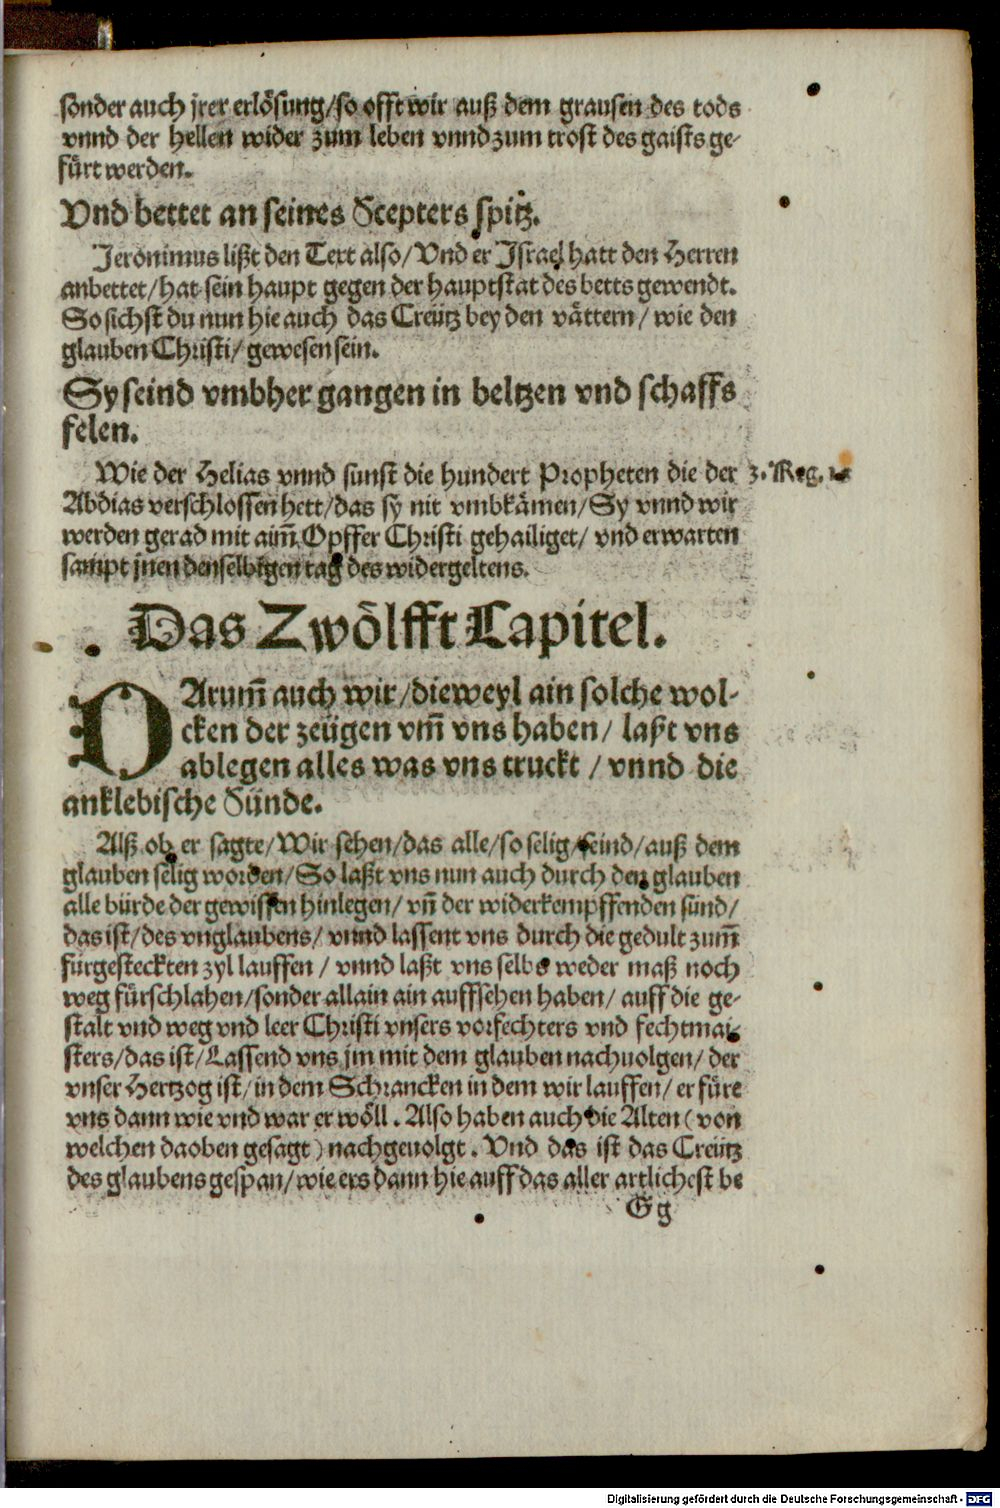 sonder auch jrer erlösung/so offt wir auß dem grausen des tods
vnnd der hellen wider zum leben vnnd zum trost des gaists ge-
fürt werden.
Vnd bettet an seines Scepters spitz.
Jeronimus lißt den Text also/Vnd er Israel hatt den Herren
anbettet/hat sein haupt gegen der hauptstat des betts gewendt.
So sichst du nun hie auch das Creütz bey den vättern/wie den
glauben Christi/gewesen sein.
Sy seind vmbher gangen in beltzen vnd schaffs
felen.
Wie der Helias vnnd sunst die hundert Propheten die der
3. Reg.
Abdias verschlossen hett/das sy nit vmbkämen/Sy vnnd wir
werden gerad mit aim̃ Opffer Christi gehailiget/vnd erwarten
sampt jnen denselbigen tag des widergeltens.
Das Zwölfft Capitel.
DArum̃ auch wir/dieweyl ain solche wol-
cken der zeügen vm̃ vns haben/laßt vns
ablegen alles was vns truckt/vnnd die
anklebische Sünde.
Alß ob er sagte/Wir sehen/das alle/so selig seind/auß dem
glauben selig worden/So laßt vns nun auch durch den glauben
alle bürde der gewissen hinlegen/vñ der widerkempffenden sünd/
das ist/des vnglaubens/vnnd lassent vns durch die gedult zum̃
fürgesteckten zyl lauffen/vnnd laßt vns selbs weder maß noch
weg fürschlahen/sonder allain ain auffsehen haben/auff die ge-
stalt vnd weg vnd leer Christi vnsers vorfechters vnd fechtmai-
sters/das ist/Lassend vns jm mit dem glauben nachuolgen/der
vnser Hertzog ist/in dem Schrancken in dem wir lauffen/er füre
vns dann wie vnd war er wöll. Also haben auch die Alten (von
welchen daoben gesagt) nachgeuolgt. Vnd das ist das Creütz
des glaubens gespan/wie ers dann hie auff das aller artlichest be
Gg
Digitalisierung gefördert durch die Deutsche Forschungsgemeinschaft - DFG